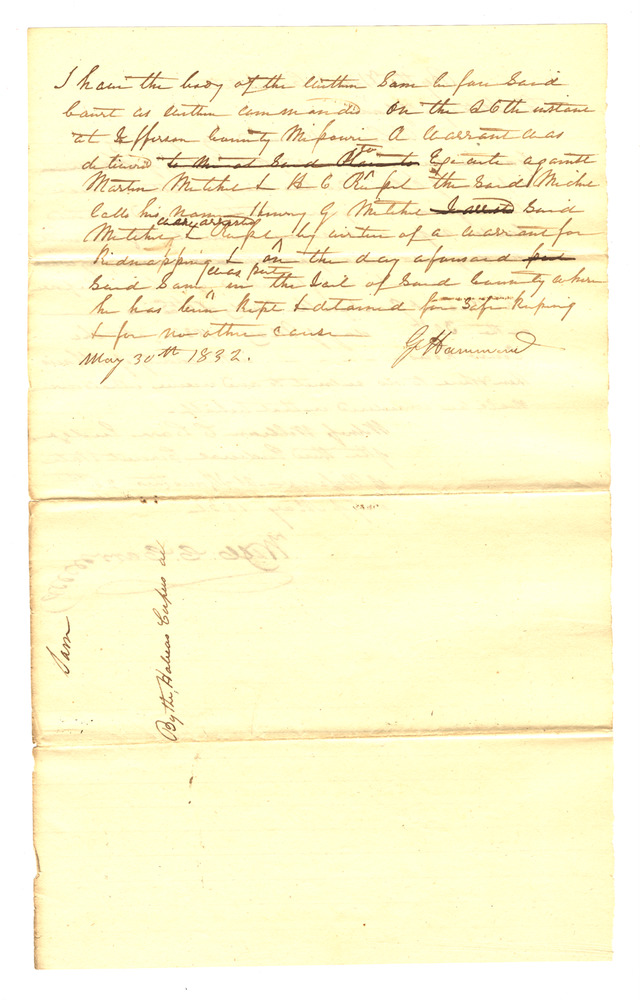 I have the body of the within Sam before Said
Court as within commanded on the 26th instant
at Jefferson County Missouri a warrant was
delivered to me at Said to Execute against
Martin Mitchel & H C Russel the Said Michel
Calls his Name Henry G Mitchel I arrested Said
Mitchel & Russel were arrested by virtue of a warrant for
Kidnapping & on the day aforesaid
Said Sam was put in the Jail of Said County where
he has been Kept & detained for Safe Keeping
& for no other cause
May 30th 1832. G Hammond
Sam
By the Habeas Corpus